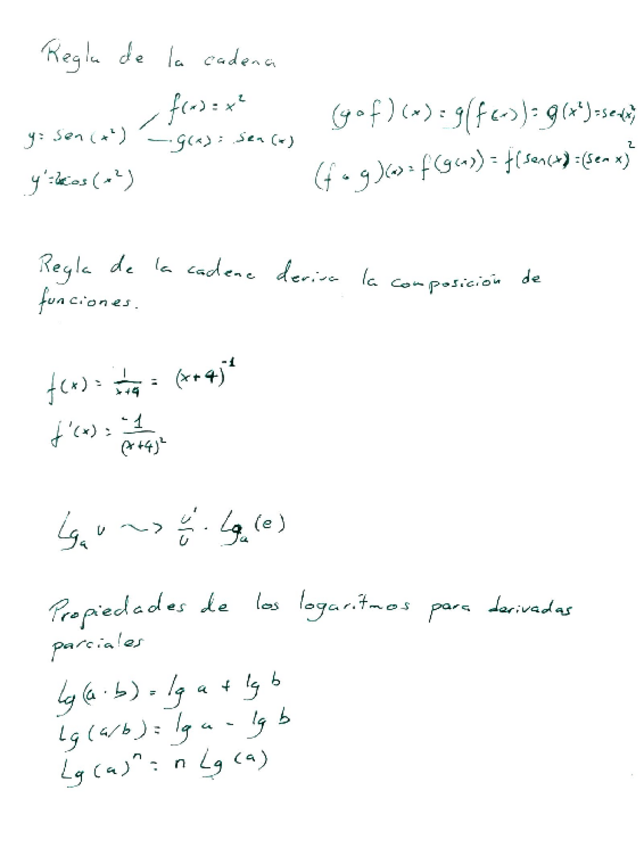 Regla de la cadena
f(x) = x²
y = sen(x²)
g(x) = sen(x)
y' = 2xcos(x²)
(g∘f)(x) = g(f(x)) = g(x²) = sen(x²)
(f∘g)(x) = f(g(x)) = f(sen(x)) = (sen x)²
Regla de la cadena deriva la composición de
funciones.
f(x) = 1/(x+4) = (x+4)⁻¹
f'(x) = -1/(x+4)²
Lgₐ u ~> u'/u · Lgₐ(e)
Propiedades de los logaritmos para derivadas
parciales
Lg(a·b) = lg a + lg b
Lg(a/b) = lg a - lg b
Lg(a)ⁿ = n Lg(a)